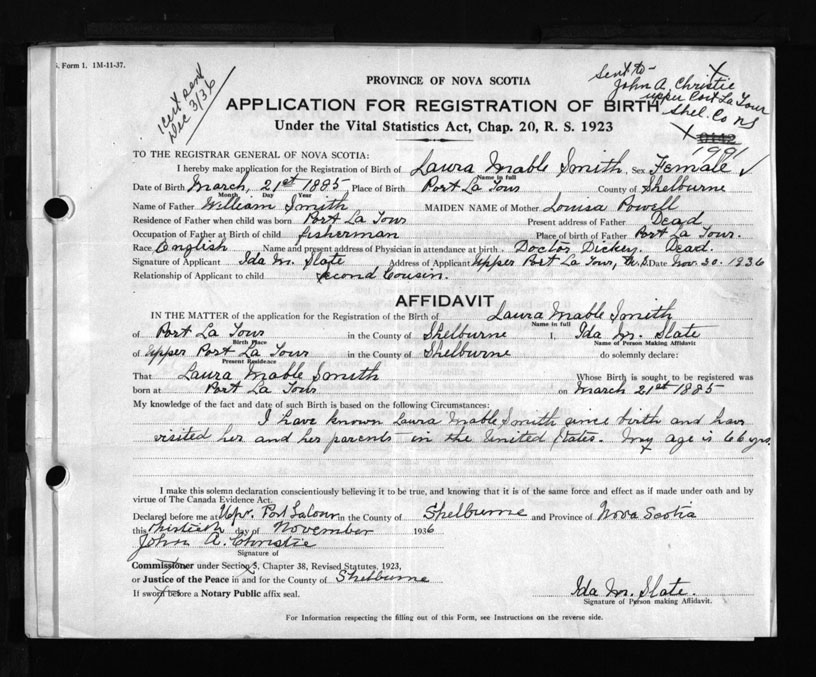 S. Form 1. 1M-11-37.
1 cert sent
Dec 3/36
Sent to-
John A. Christie
upper Port La Tour
Shel. Co NS
X
PROVINCE OF NOVA SCOTIA
APPLICATION FOR REGISTRATION OF BIRTH
Under the Vital Statistics Act, Chap. 20, R. S. 1923
X 0142
1991
TO THE REGISTRAR GENERAL OF NOVA SCOTIA:
I hereby make application for the Registration of Birth of Laura Mable Smith, Sex Female ✓
Name in full
Date of Birth March, 21st 1885 Place of Birth Port La Tour County of Shelburne
Month Day Year
Name of Father William Smith MAIDEN NAME of Mother Louisa Powell
Residence of Father when child was born Port La Tour Present address of Father Dead
Occupation of Father at Birth of child fisherman Place of birth of Father Port La Tour.
Race English Name and present address of Physician in attendance at birth Doctor Dickey. Dead.
Signature of Applicant Ida M. Slate Address of Applicant Upper Port La Tour, N.S. Date Nov. 30. 1936
Relationship of Applicant to child second Cousin.
AFFIDAVIT
IN THE MATTER of the application for the Registration of the Birth of Laura Mable Smith
Name in full
of Port La Tour in the County of Shelburne I, Ida M. Slate
Birth Place Name of Person Making Affidavit
of Upper Port La Tour in the County of Shelburne do solemnly declare:
Present Residence
That Laura Mable Smith Whose Birth is sought to be registered was
born at Port La Tour on March 21st 1885
My knowledge of the fact and date of such Birth is based on the following Circumstances:
I have known Laura Mable Smith since birth and have
visited her and her parents in the United States. My age is 66 yrs.
X
I make this solemn declaration conscientiously believing it to be true, and knowing that it is of the same force and effect as if made under oath and by
virtue of The Canada Evidence Act.
Declared before me at Upr. Port Latour in the County of Shelburne and Province of Nova Scotia
this thirtieth day of November 1936
John A. Christie
Signature of
Commissioner under Section 5, Chapter 38, Revised Statutes, 1923,
or Justice of the Peace in and for the County of Shelburne
If sworn before a Notary Public affix seal.
Ida M. Slate.
Signature of Person making Affidavit.
For Information respecting the filling out of this Form, see Instructions on the reverse side.